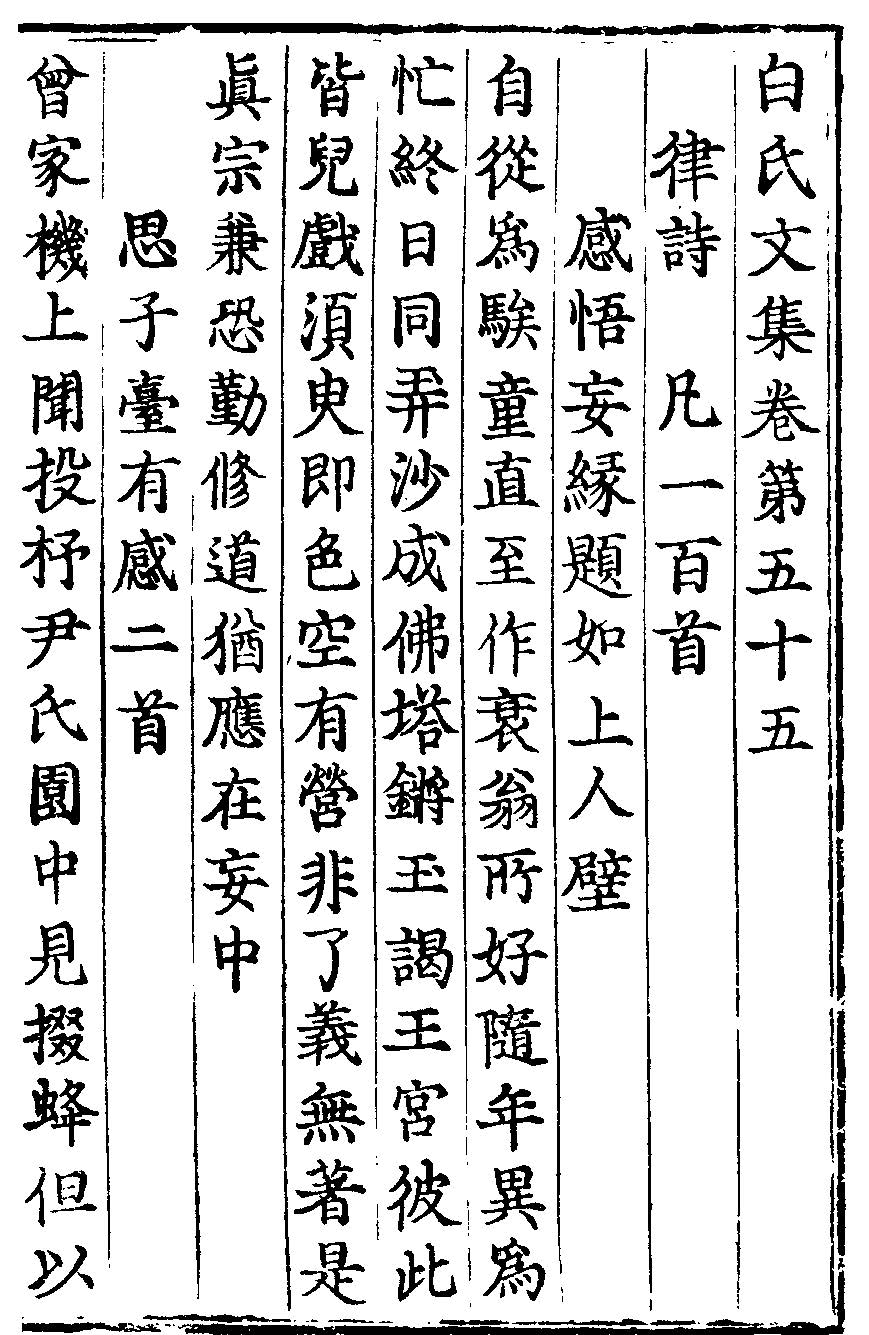 白氏文集卷第五十五
律詩　凡一百首
感悟妄縁題如上人壁
自從爲騃童直至作衰翁所好隨年異爲
忙終日同弄沙成佛塔鏘玉謁王宮彼此
皆兒戲須臾即色空有營非了義無著是
眞宗兼恐勤修道猶應在妄中
思子臺有感二首
曾家機上聞投杼尹氏園中見掇蜂但以